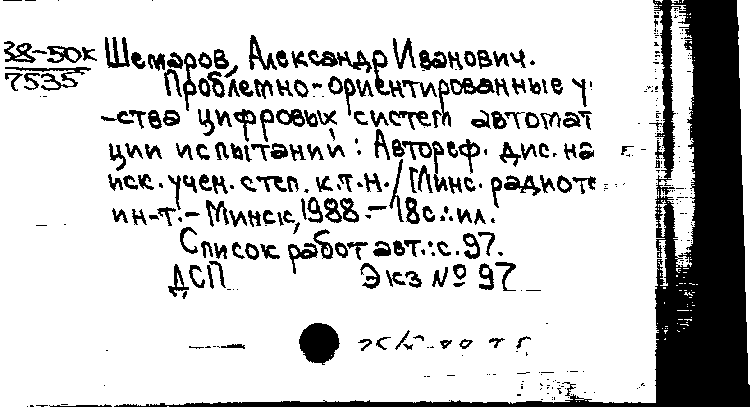 38-50к Шемаров, Александр Иванович.
7535 Проблемно-ориентированные у
-ства цифровых систем автомат
ции испытаний: Автореф. дис. на
иск. учен. степ. к.т.н. / Минс. радиоте
ин-т.- Минск, 1988.- 18с.:ил.
Список работ авт.: с.97.
ДСП Экз № 97